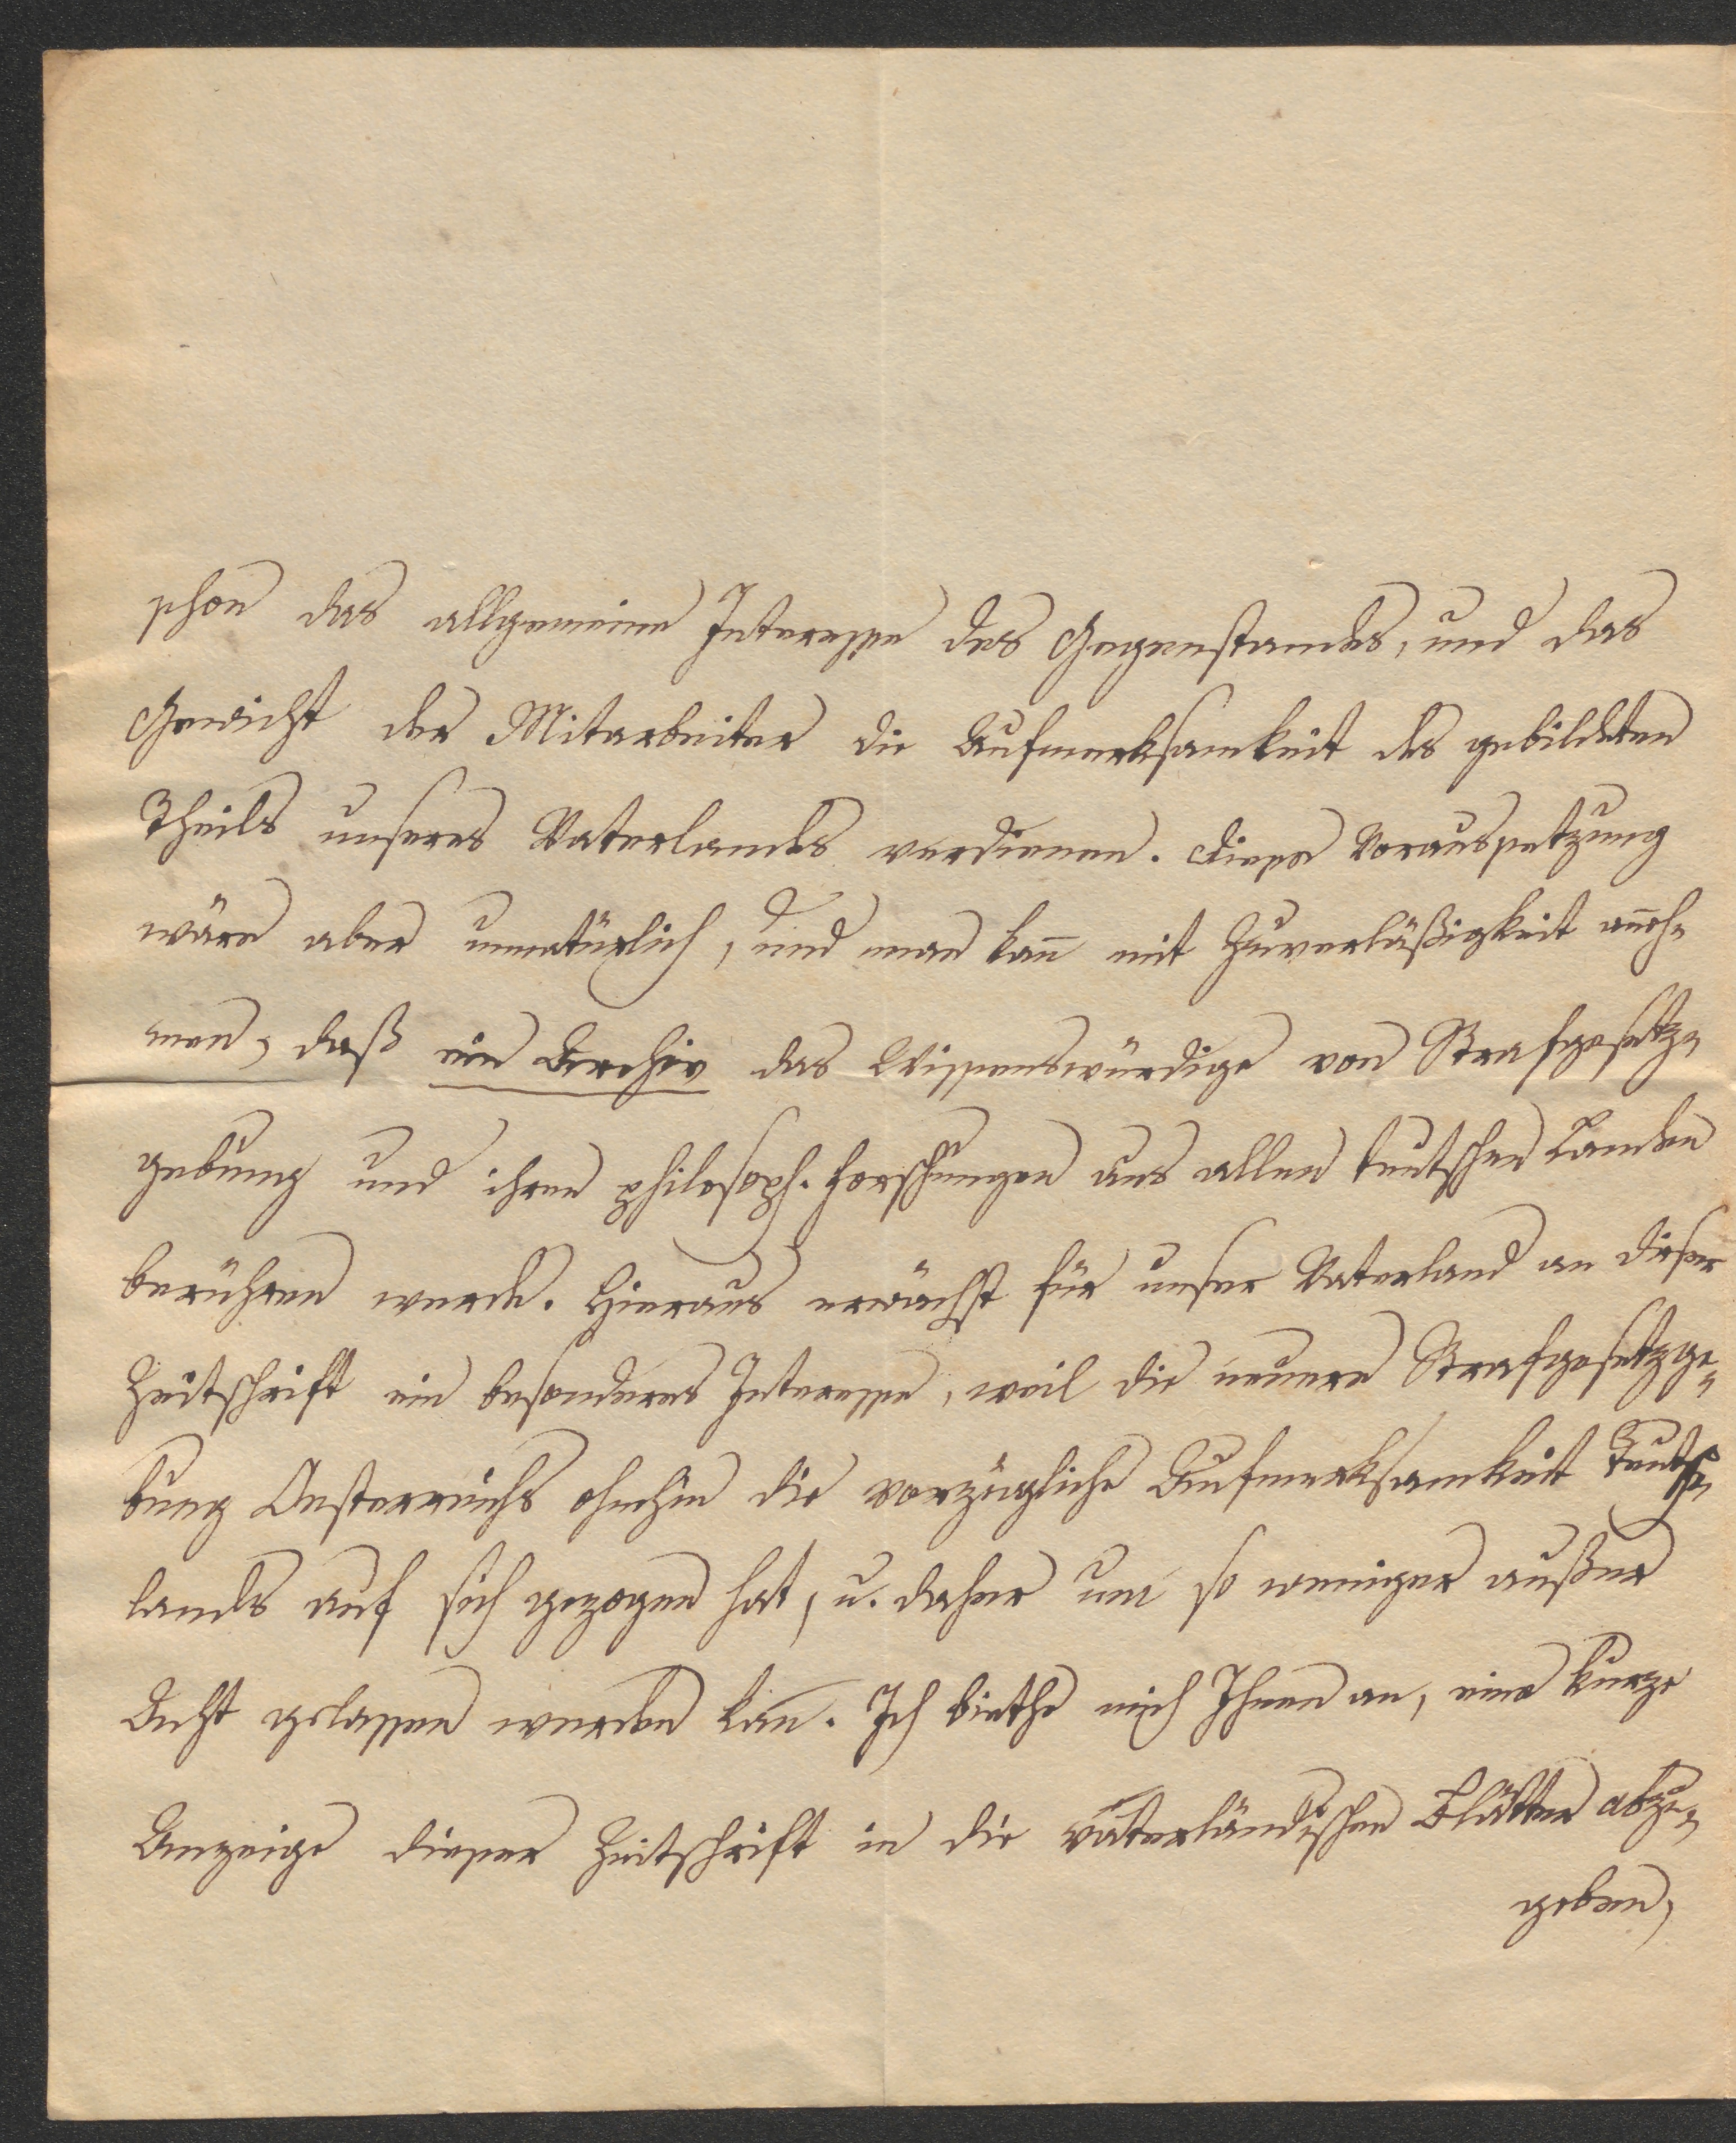 schon das allgemeine Interesse des Gegenstandes, und das
Gewicht der Mitarbeiter die Aufmerksamkeit des gebildeten
Theils unseres Vaterlandes verdienen. Diese Voraussetzung
wäre aber unnatürlich, und man kan̄ mit Zuverläßigkeit an̄eh-
men, daß ein Archiv das Wissenswürdige von Strafgesetz-
gebung und ihren philosoph. Forschungen aus allen teutschen Landen
berühren werde. Hieraus erwächst für unser Vaterland an dieser
Zeitschrift ein besonderes Interesse, weil die neuere Strafgesetzge-
bung Oesterreichs ohnehin die vorzügliche Aufmerksamkeit Teutsch-
lands auf sich gezogen hat, u. daher um so weniger außer
Acht gelassen werden kan̄. Ich biethe mich Ihnen an, eine kurze
Anzeige dieser Zeitschrift in die vaterländischen Blätter abzu-
geben,